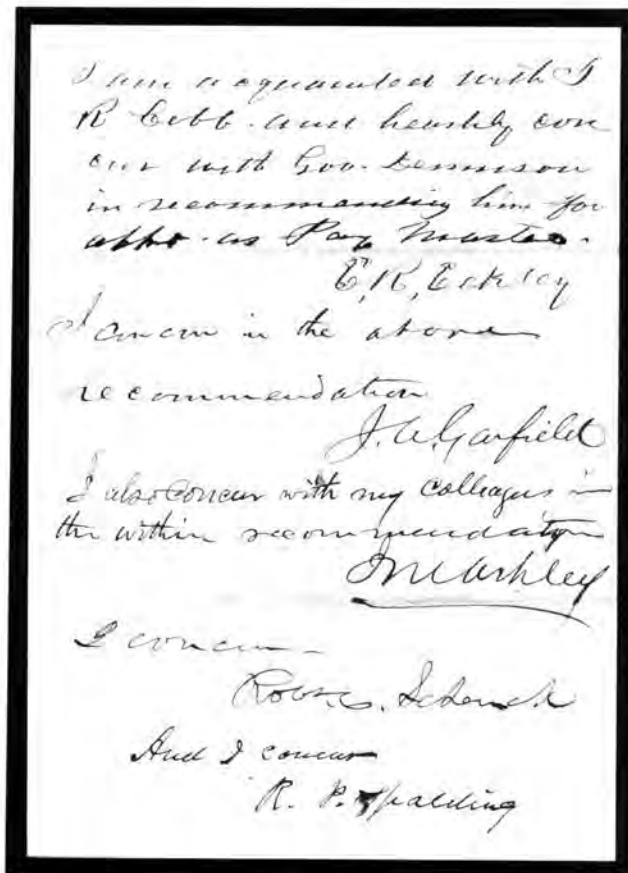 I am acquainted with T
R Cobb. and heartily con
cur with Gov. Dennison
in recommending him for
appt. as Pay Master.
E, R, Eckley
I concur in the above
recommendation
J. A. Garfield
I also concur with my colleagues in
the within recommendation
J M Ashley
I concur -
Robt. C. Schenck
And I concur
R. P. Spalding